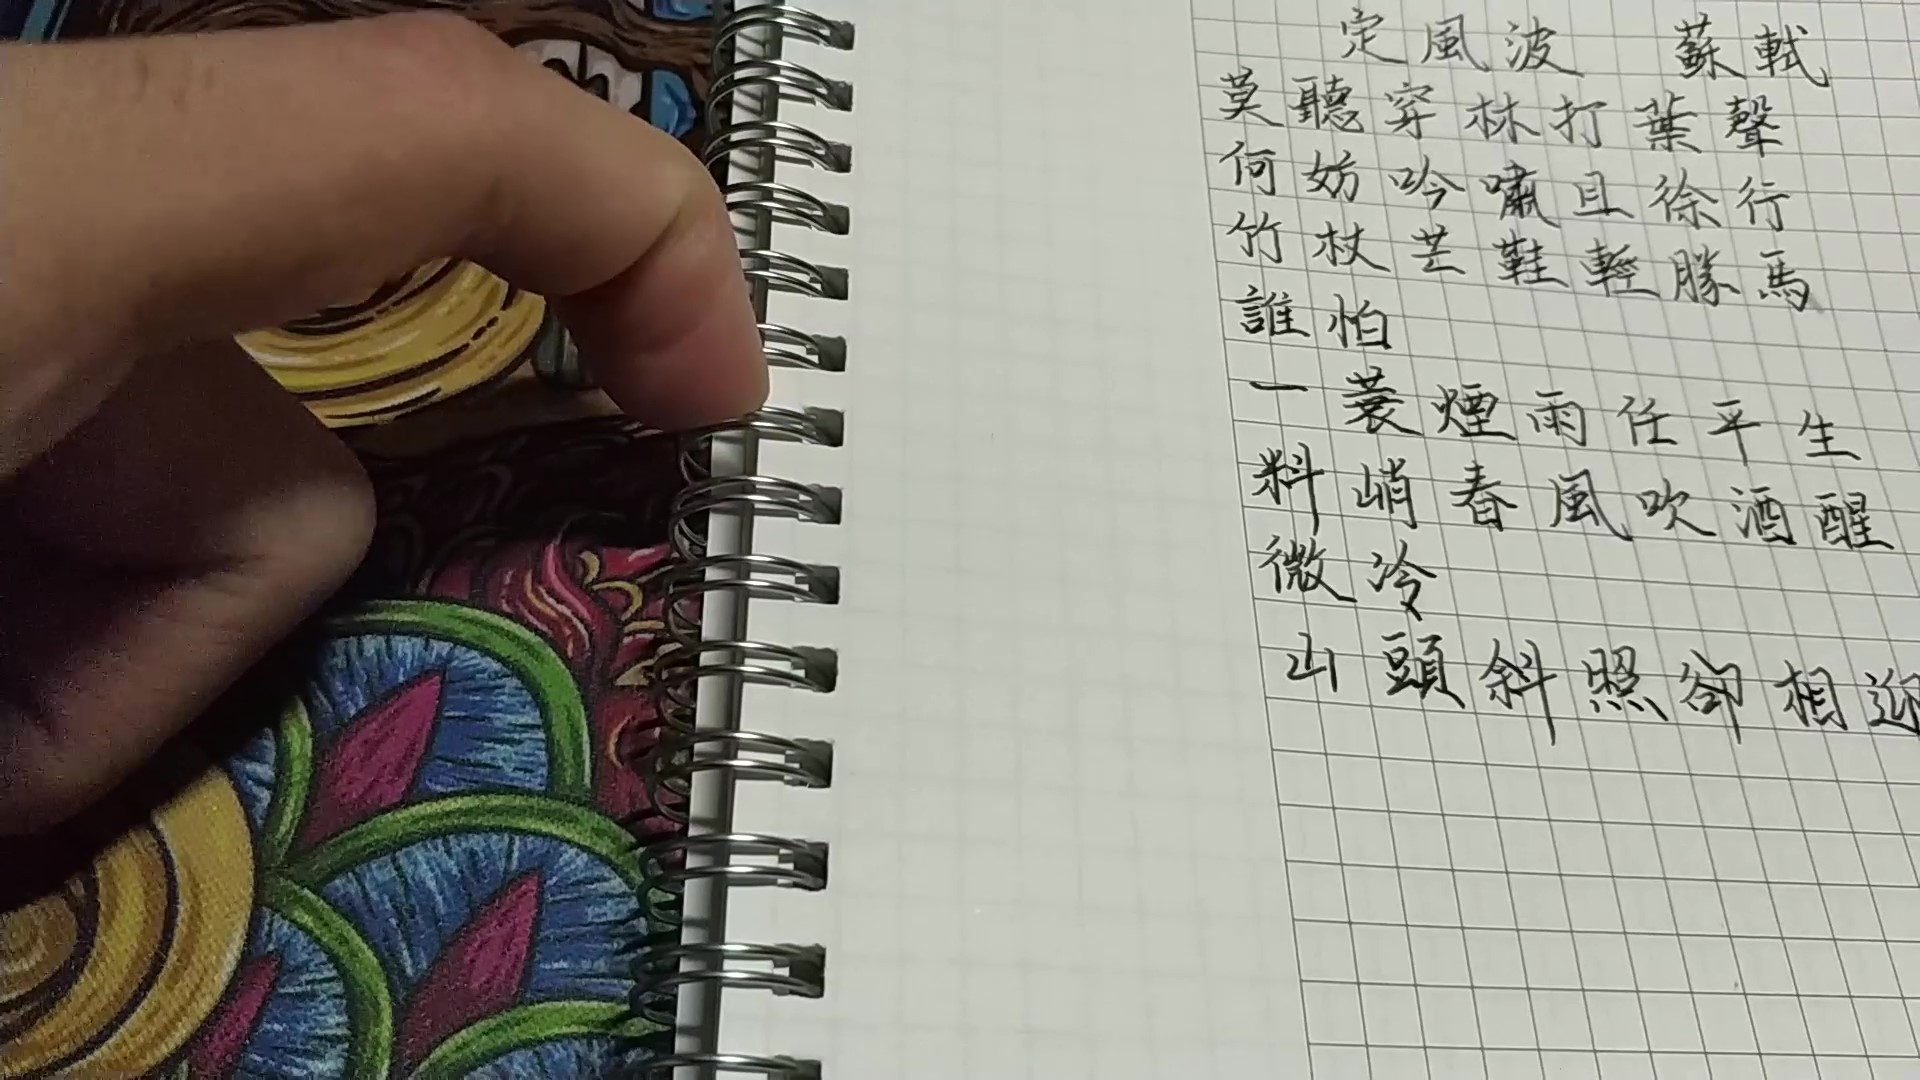 定風波 蘇軾
莫聽穿林打葉聲
何妨吟嘯且徐行
竹杖芒鞋輕勝馬
誰怕
一蓑煙雨任平生
料峭春風吹酒醒
微冷
山頭斜照卻相迎